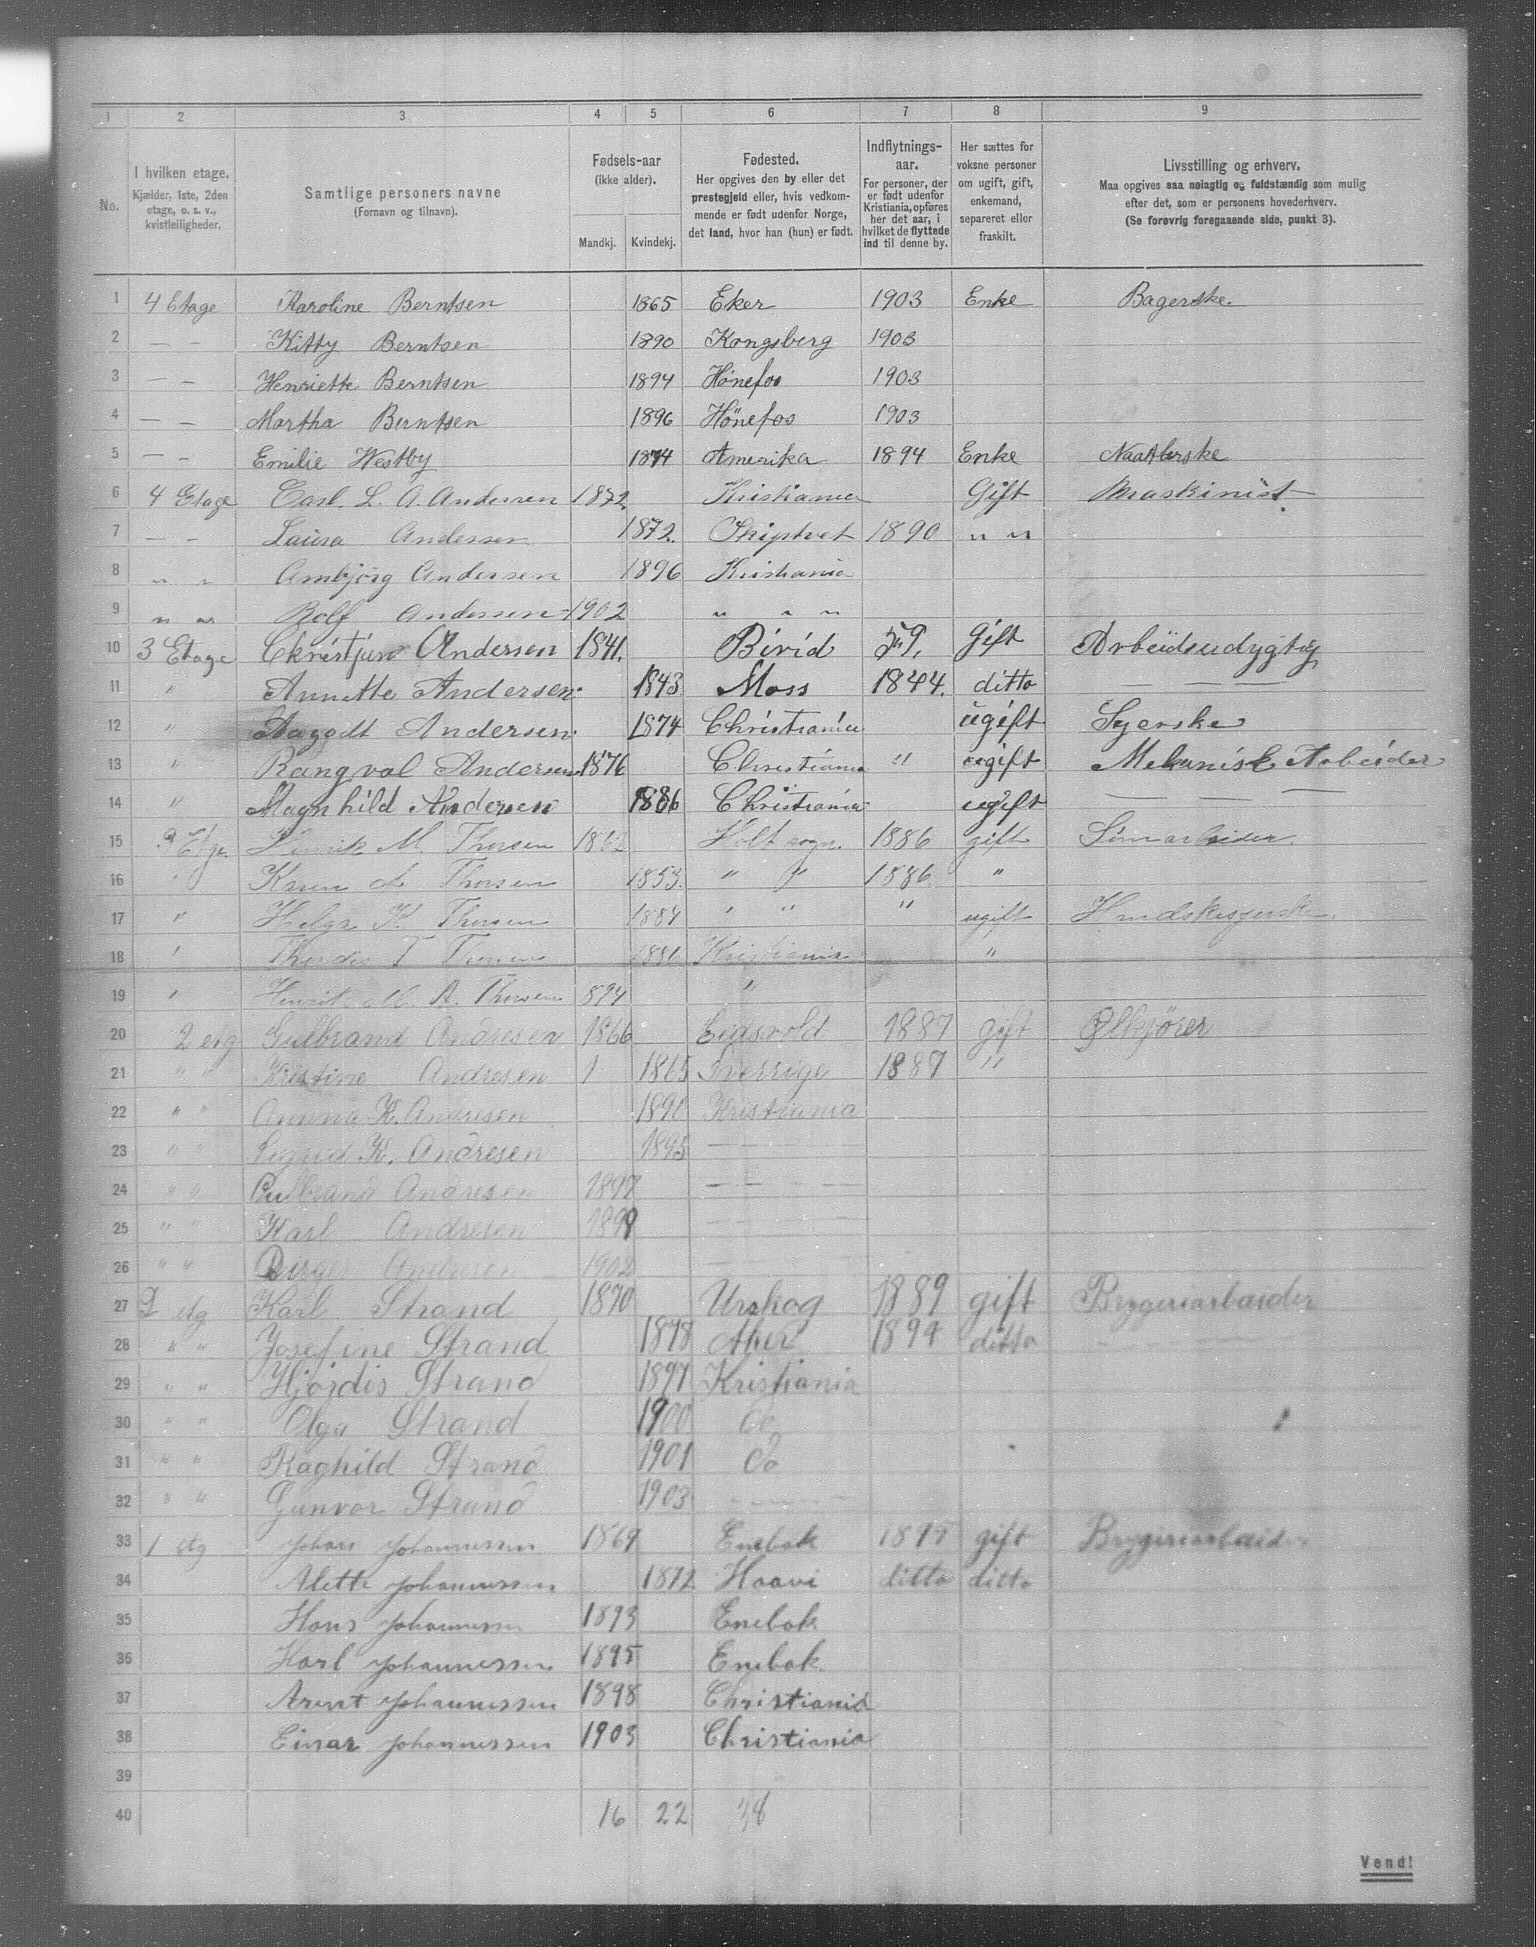 1 2 3 4 5 6 7 8 9
No.
I hvilken etage.
Kjælder, 1ste, 2den
etage, o. s. v.,
kvistleiligheder.
Samtlige personers navne
(Fornavn og tilnavn).
Fødsels-aar
(ikke alder).
Mandkj. Kvindekj.
Fødested.
Her opgives den by eller det
prestegjeld eller, hvis vedkom-
mende er født udenfor Norge,
det land, hvor han (hun) er født.
Indflytnings-
aar.
For personer, der
er født udenfor
Kristiania, opføres
her det aar, i
hvilket de flyttede
ind til denne by.
Her sættes for
voksne personer
om ugift, gift,
enkemand,
separeret eller
fraskilt.
Livsstilling og erhverv.
Maa opgives saa nøiagtig og fuldstændig som mulig
efter det, som er personens hovederhverv.
(Se forøvrig foregaaende side, punkt 3).
1 4 Etage Karoline Berntsen 1865 Eker 1903 Enke Bagerske
2 — – Kitty Berntsen 1890 Kongsberg 1903
3 — – Henriette Berntsen 1894 Hönefos 1903
4 — – Martha Berntsen 1896 Hönefos 1903
5 — – Emilie Westby 1874 Amerika 1894 Enke
6 4 Etage Carl. L. A. Andersen 1872. Kristiania Gift Maskinist
7 — – Laura Andersen 1872. Skiptvet 1890 " "
8 " " Arnbjörg Andersen 1896 Kristiania
9 " " Rolf Andersen 1902 " " "
10 3 Etage Christian Andersen 1841. Birid 59. Gift Arbeidsudygtig
11 " Annette Andersen 1843 Moss 1844. ditto — — —
12 " Aagodt Andersen 1874 Christiania ugift Syerske
13 " Rangval Andersen 1876 Christiania " ugift Mekanisk Arbeider
14 " Magnhild Andersen 1886 Christiania ugift — —
15 3 Etge. Henrik M. Thorsen 1862 Holt sogn. 1886 gift
16 " Karen A Thorsen 1853. " " 1886 "
17 " Helga K Thorsen 1884 " " " ugift Handskesyerske
18 " T Thorsen 1886 Kristiania "
19 " Henrik M. A. Thorsen 894 "
20 2 etg Gulbrand Andresen 1866 Eidsvold 1887 gift Ølkjører
21 " " Kristine Andresen 1 1865 Sverrige 1887 "
22 " " Anna K. Andresen 1890 Kristiania
23 " " Sigrid K. Andresen 1895 — — —
24 " " Gulbrand Andresen 1897 — — —
25 " " Karl Andresen 1899 — — —
26 " " Birger Andresen 1902 —
27 2 etg Karl Strand 1870 Urskog 1889 gift Bryggeriarbeider
28 " " Josefine Strand 1878 Aker 1894 ditto — — —
29 " " Hjördis Strand 1897 Kristiania
30 " " Olga Strand 1900 do
31 " " Raghild Strand 1901 do
32 " " Gunvor Strand 1903 — — —
33 1 etg Johan Johannessen 1869 Enebak 1895 gift Bryggeriarbeider
34 Alette Johannessen 1872 Haavi ditto ditto
35 Hans Johannessen 1893 Enebak
36 Karl Johannessen 1895 Enebak
37 Arent Johannessen 1898 Christiania
38 Einar Johannessen 1903 Christiania
39
40 16 22 38
Vend!